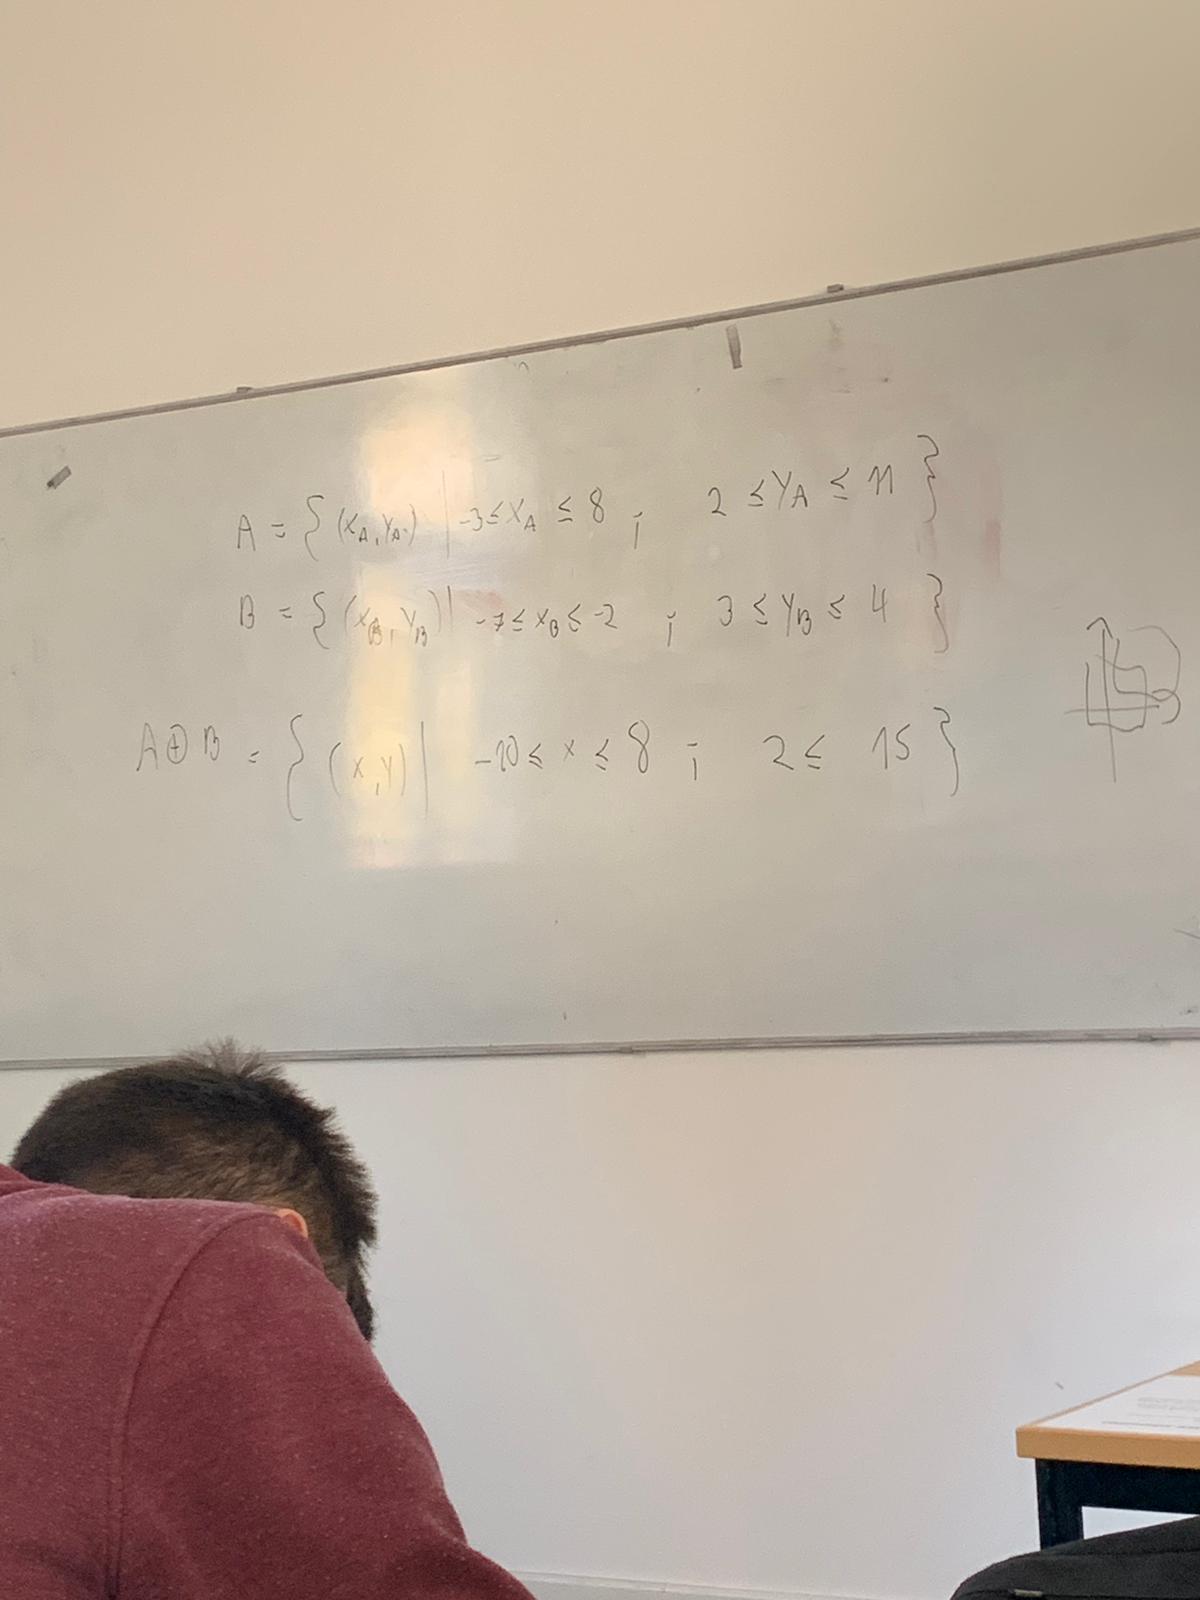 A = { (x_A, y_A) | -3 ≤ x_A ≤ 8 ; 2 ≤ y_A ≤ 11 }
B = { (x_B, y_B) | -7 ≤ x_B ≤ -2 ; 3 ≤ y_B ≤ 4 }
A ⊕ B = { (x, y) | -10 ≤ x ≤ 8 ; 2 ≤ 15 }